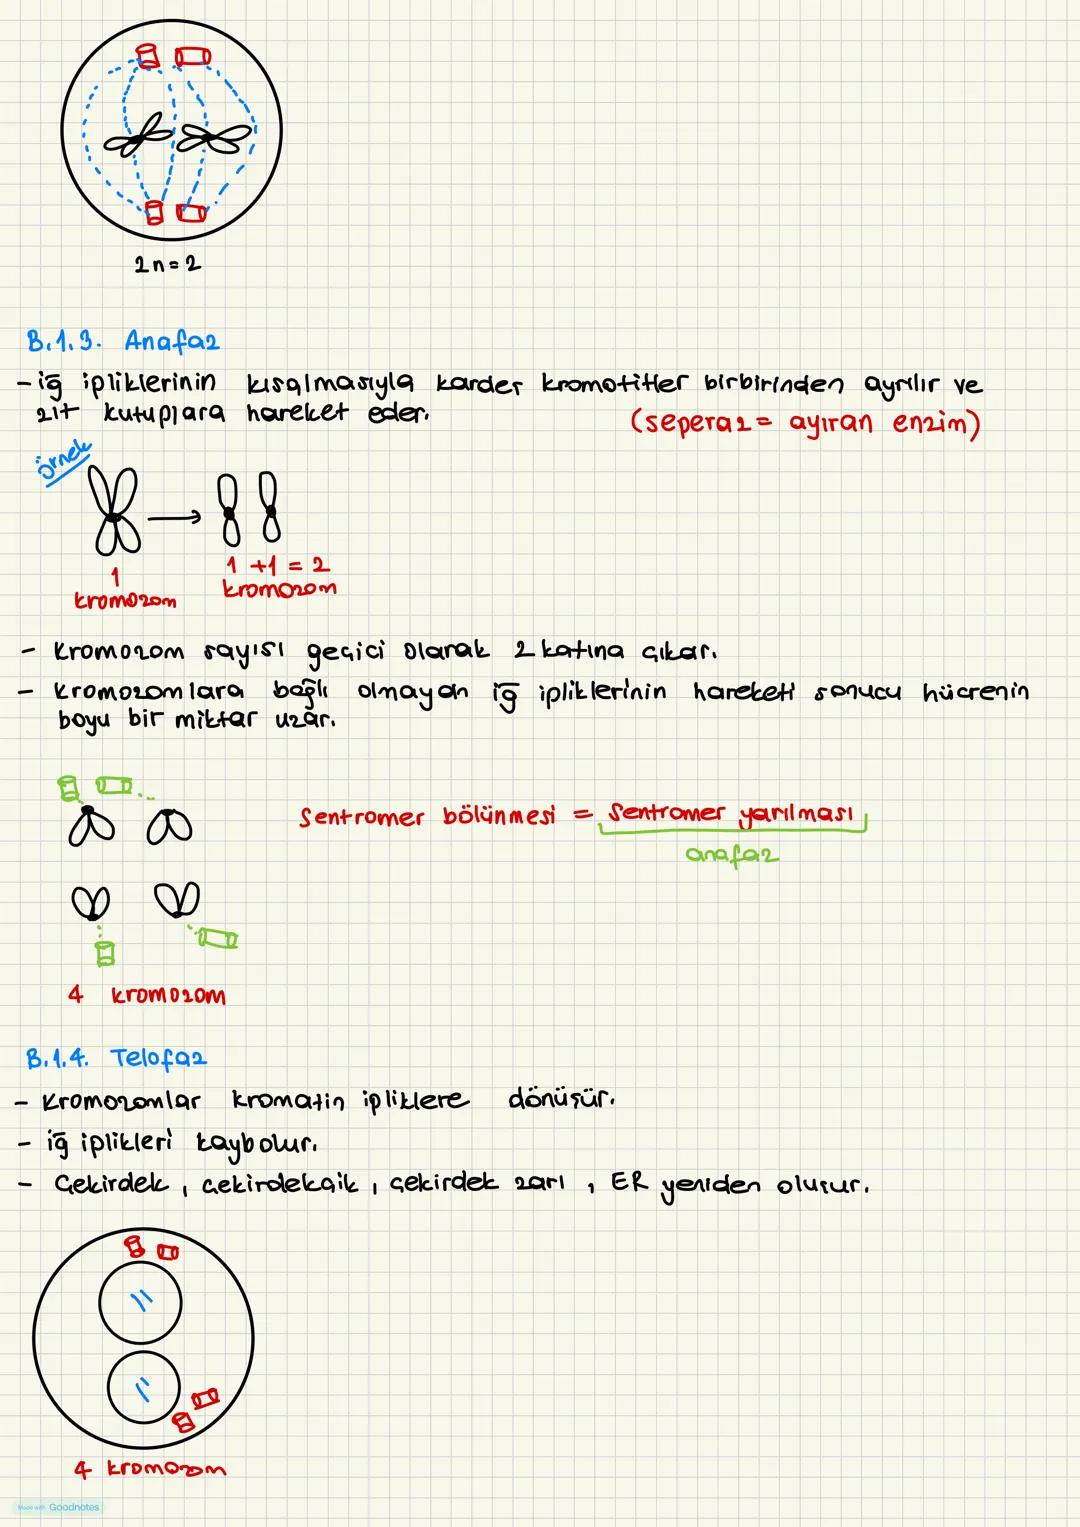 2n=2
B.1.3. Anafaz
- iğ ipliklerinin kısalmasıyla kardeş kromotitler birbirinden ayrılır ve
zıt kutuplara hareket eder.
(seperaz = ayıran enzim)
örnek
1
kromozom
1 +1 = 2
kromozom
- Kromozom sayısı geçici olarak 2 katına çıkar.
- Kromozomlara bağlı olmayan iğ ipliklerinin hareketi sonucu hücrenin
boyu bir miktar uzar.
Sentromer bölünmesi = Sentromer yarılması
anafaz
4 kromozom
B.1.4. Telofaz
- Kromozomlar kromatin ipliklere dönüşür.
- iğ iplikleri kaybolur.
- Çekirdek, çekirdekçik, çekirdek zarı, ER yeniden oluşur.
4 kromozom
Made with Goodnotes